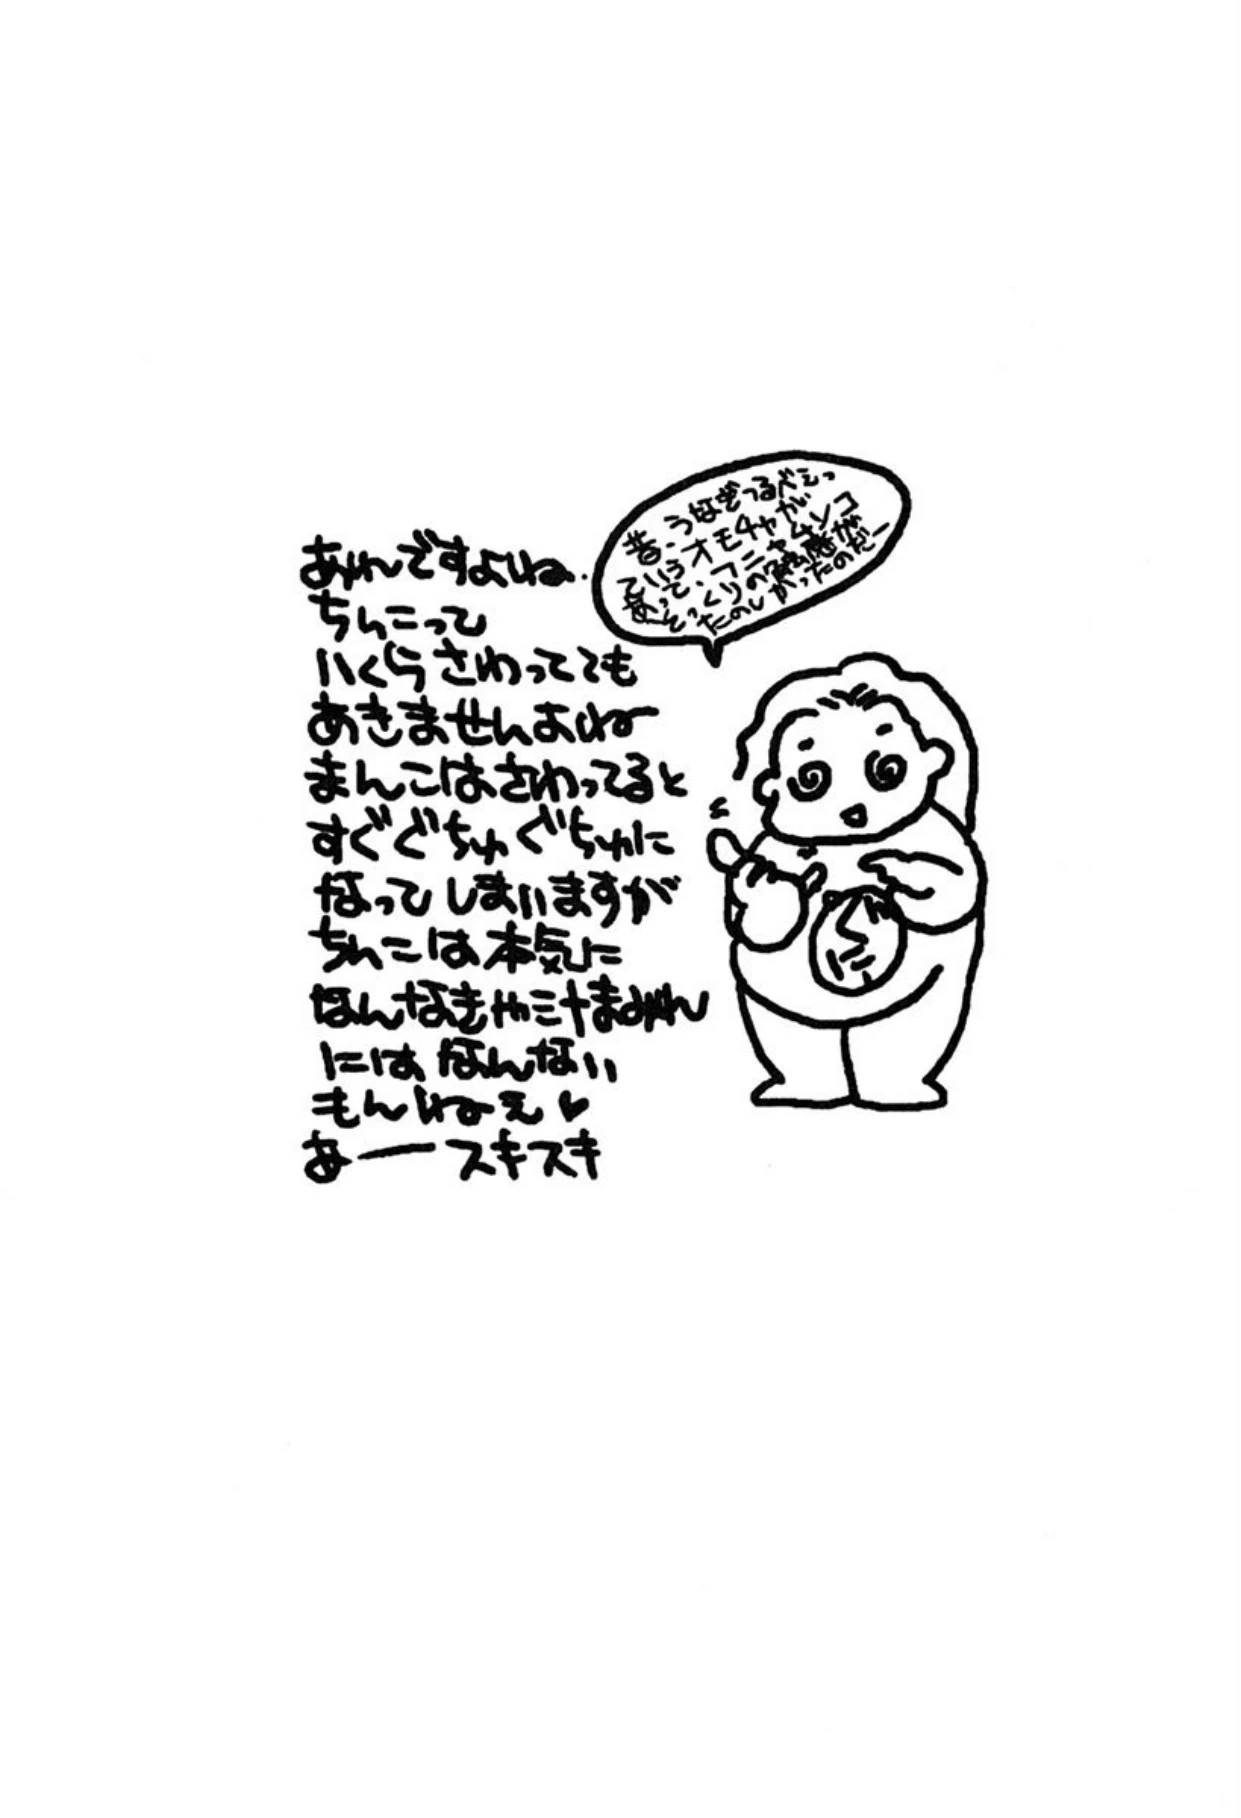 昔、うなぎつるべえっ
ていうオモチャが
あって、フニャチンコ
そっくりの触感が
たのしかったのだー
あれですよね.
ちんこって
いくらさわってても
あきませんよね
まんこはさわってると
すぐぐちゅぐちゅに
なってしまいますが
ちんこは本気に
なんなきゃ汁まみれ
にはなんない
もんねえ♥
あースキスキ